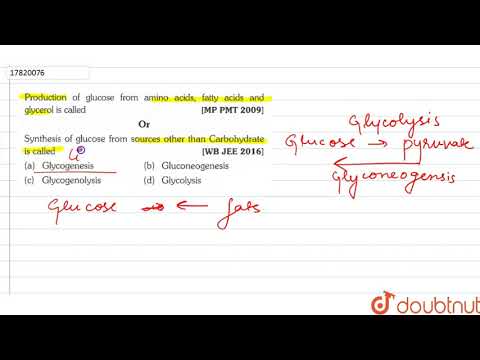 17820076
Production of glucose from amino acids, fatty acids and
glycerol is called [MP PMT 2009]
Or
Synthesis of glucose from sources other than Carbohydrate
is called [WB JEE 2016]
(a) Glycogenesis (b) Gluconeogenesis
(c) Glycogenolysis (d) Glycolysis
Glucose ← fats
Glycolysis
Glucose → pyruvate
Glyconeogensis
doubtnut